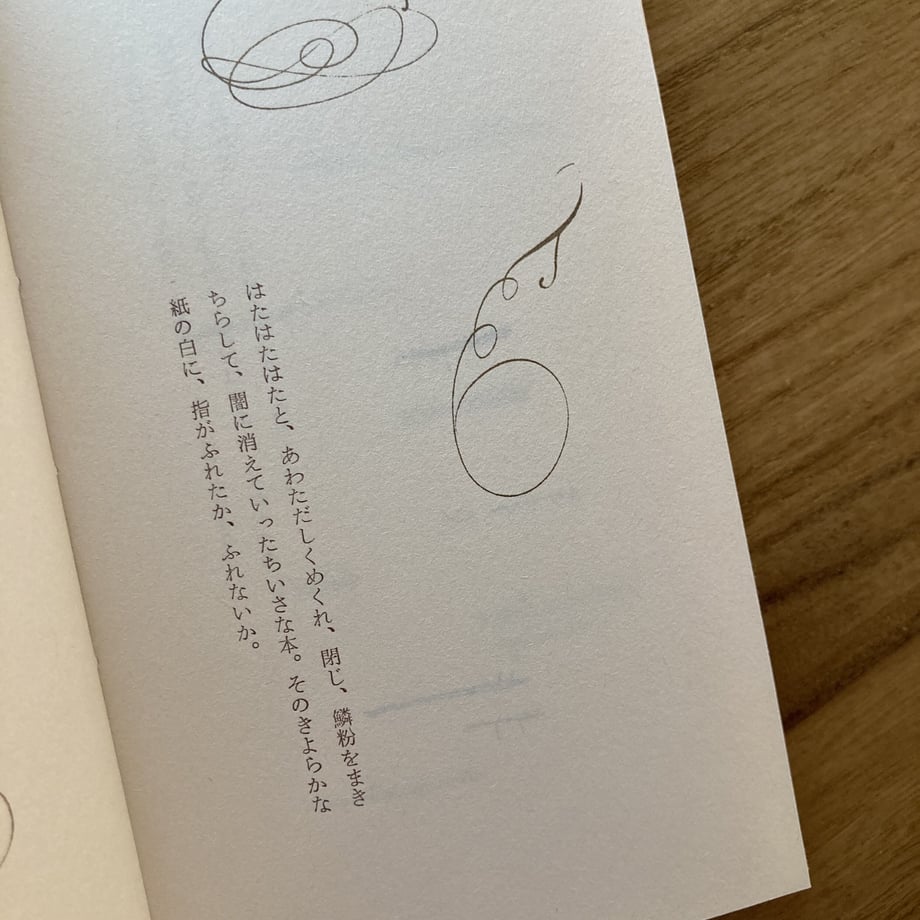 はたはたはたと、あわただしくめくれ、閉じ、鱗粉をまき
ちらして、闇に消えていったちいさな本。そのきよらかな
紙の白に、指がふれたか、ふれないか。